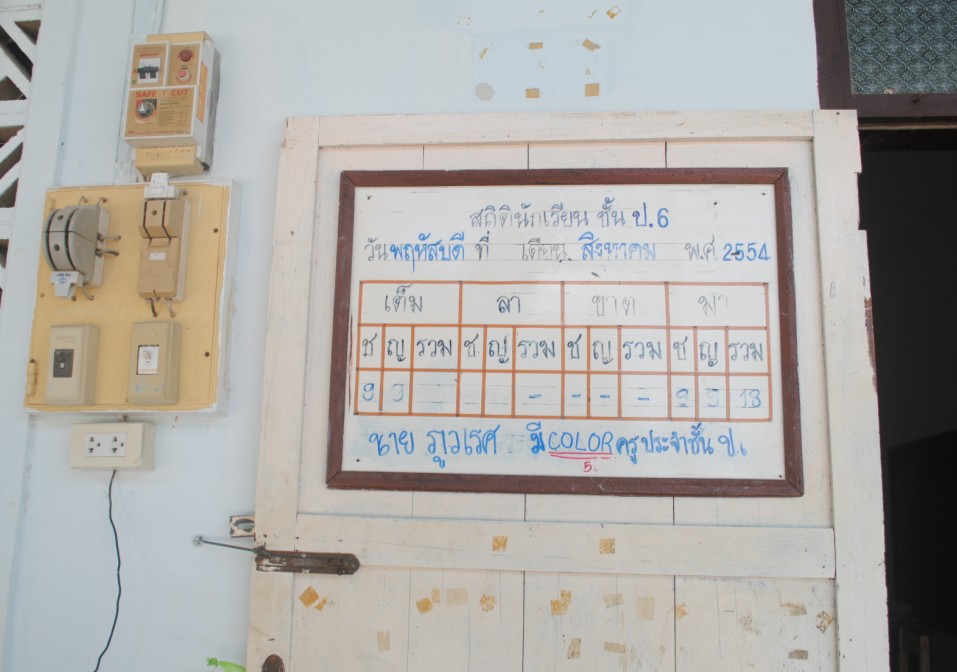 SAFE T CUT
สถิตินักเรียน ชั้น ป.6
วันพฤหัสบดี ที่ เดือน สิงหาคม พ.ศ 2554
เต็ม ลา ขาด มา
ช ญ รวม ช ญ รวม ช ญ รวม ช ญ รวม
9 9 - - - - - - 9 9 18
นาย ภูวเรศ มีCOLOR ครูประจำชั้น ป.6
5.